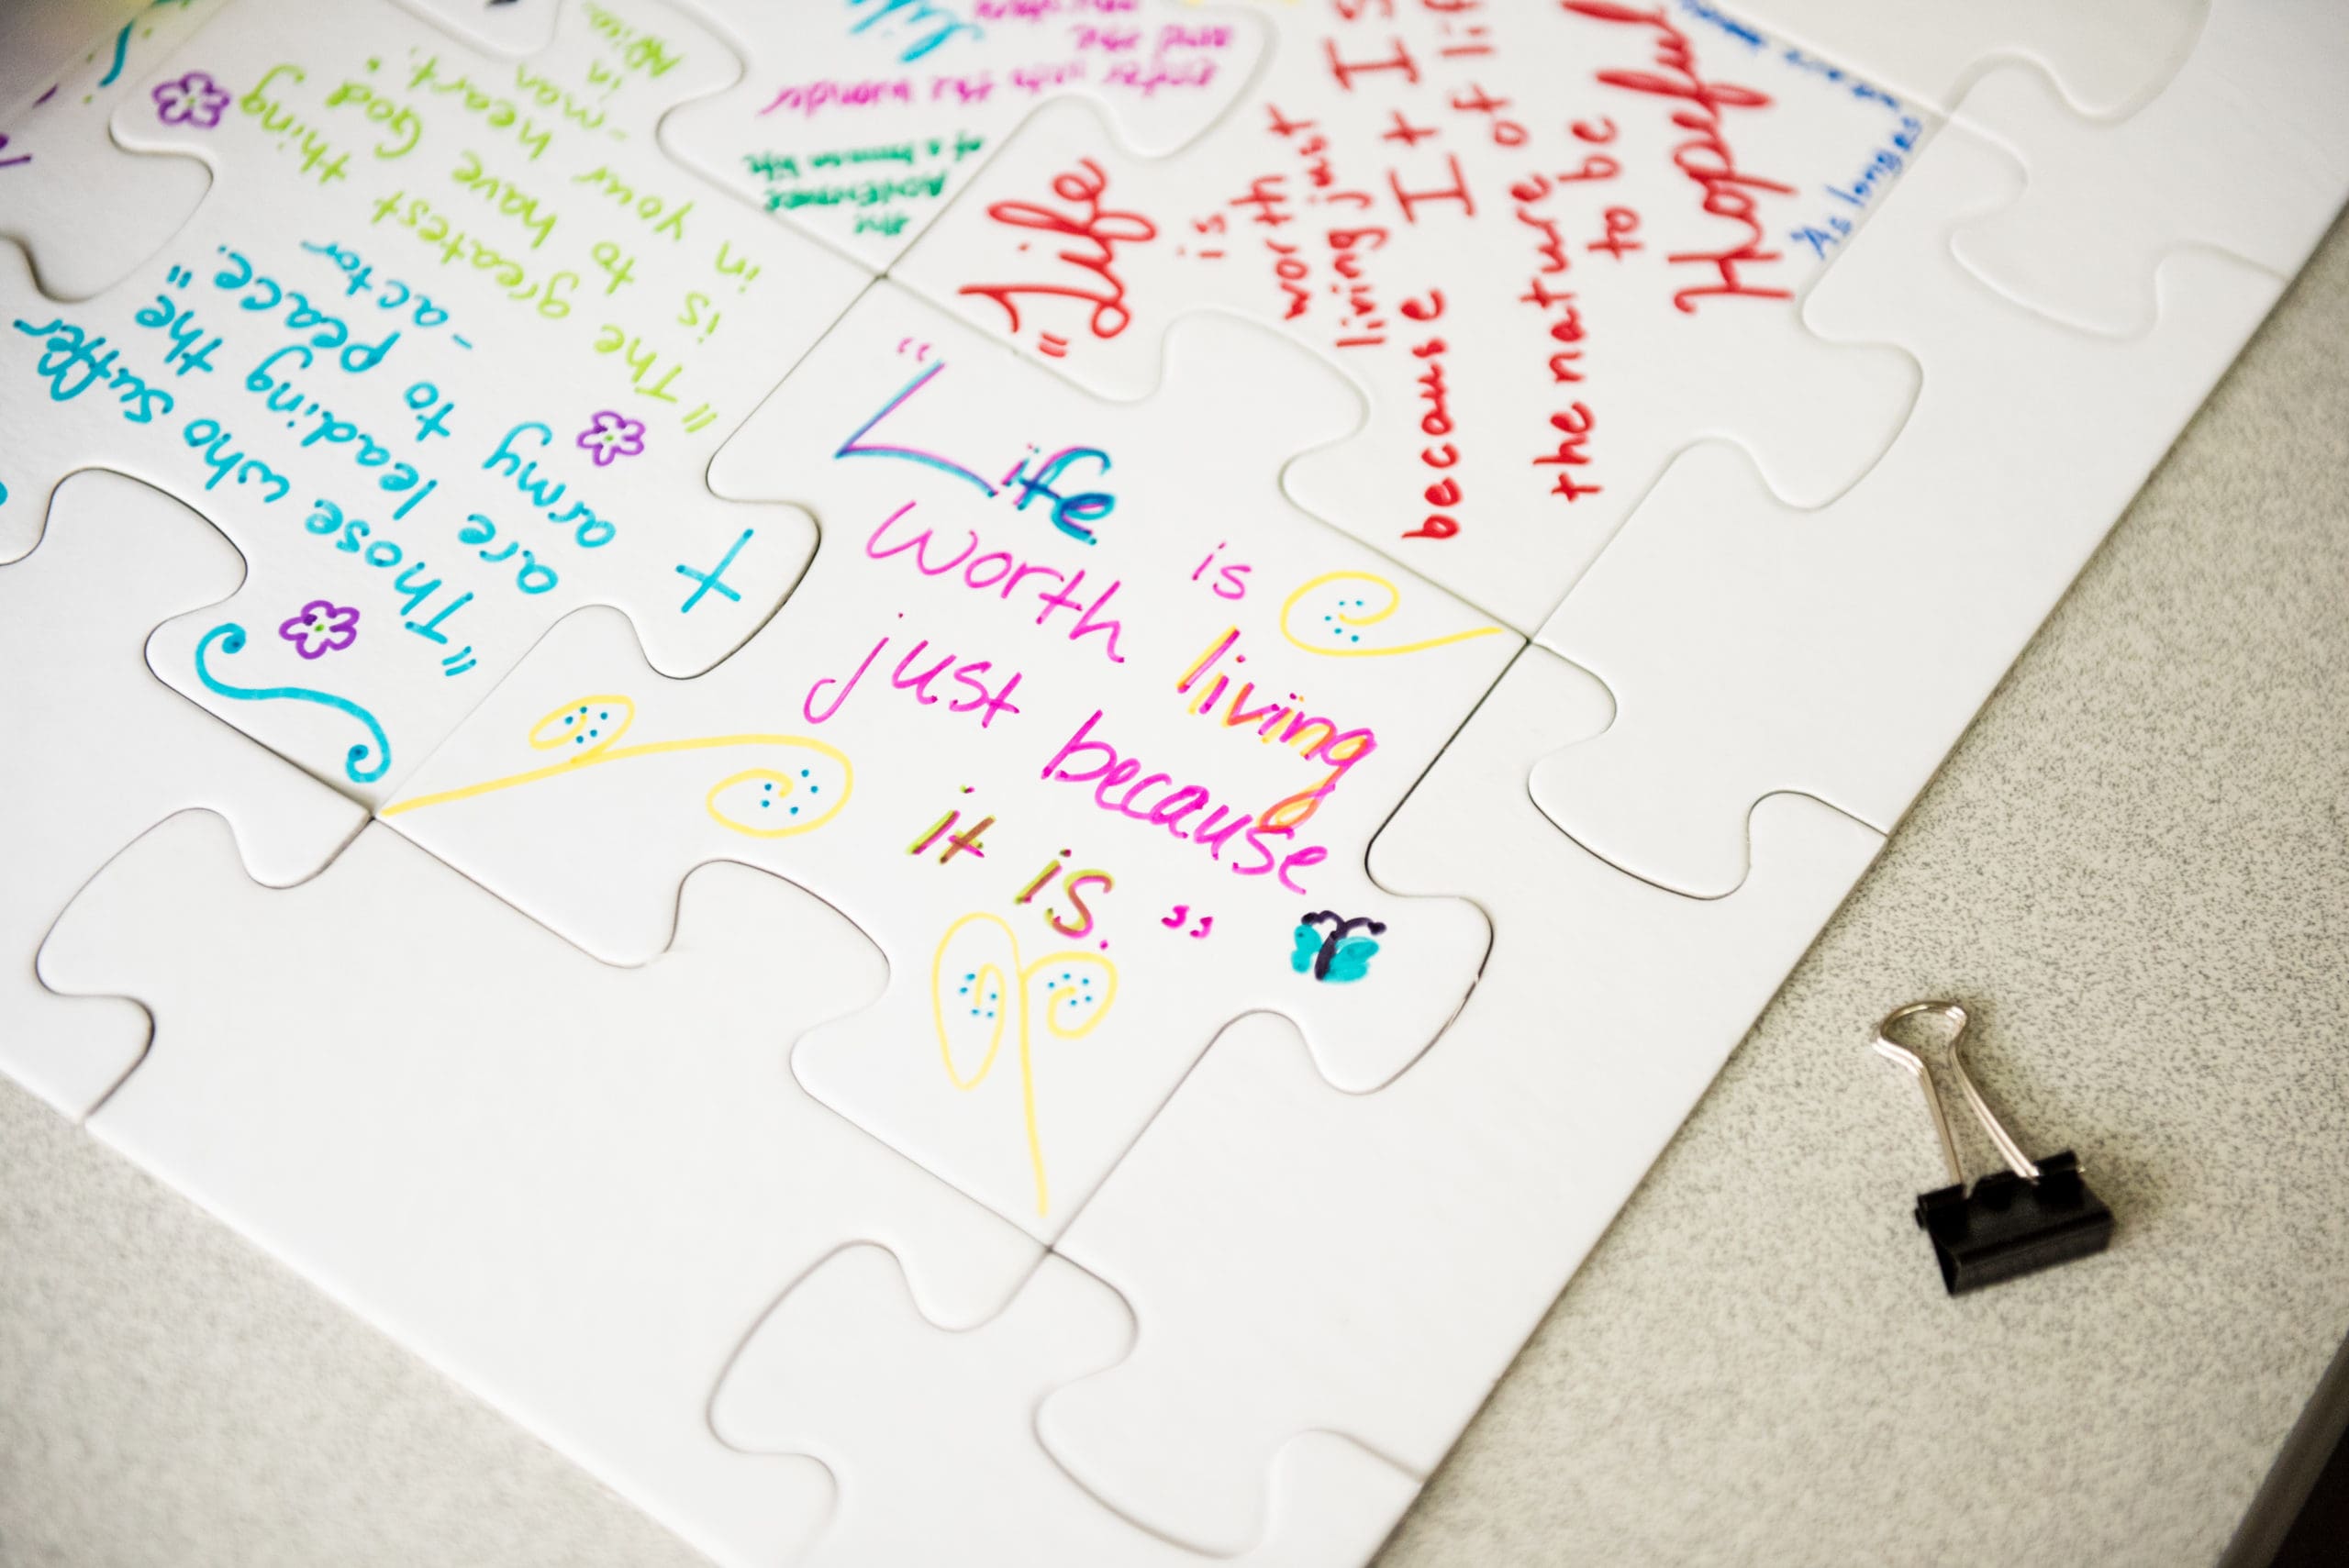 "Life is
worth living
just because
it is."
"Life
is
worth
living just
because It Is
the nature of
to be
Hopeful
"As long as
"Those who suffer
are leading the
army to peace."
-actor
"The greatest thing
is to have God
in your heart."
-man
in
enter into the wonder
and the
the
adventure
of a human life